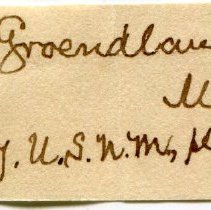 Groendlan
M
y. U.S.N.M.,